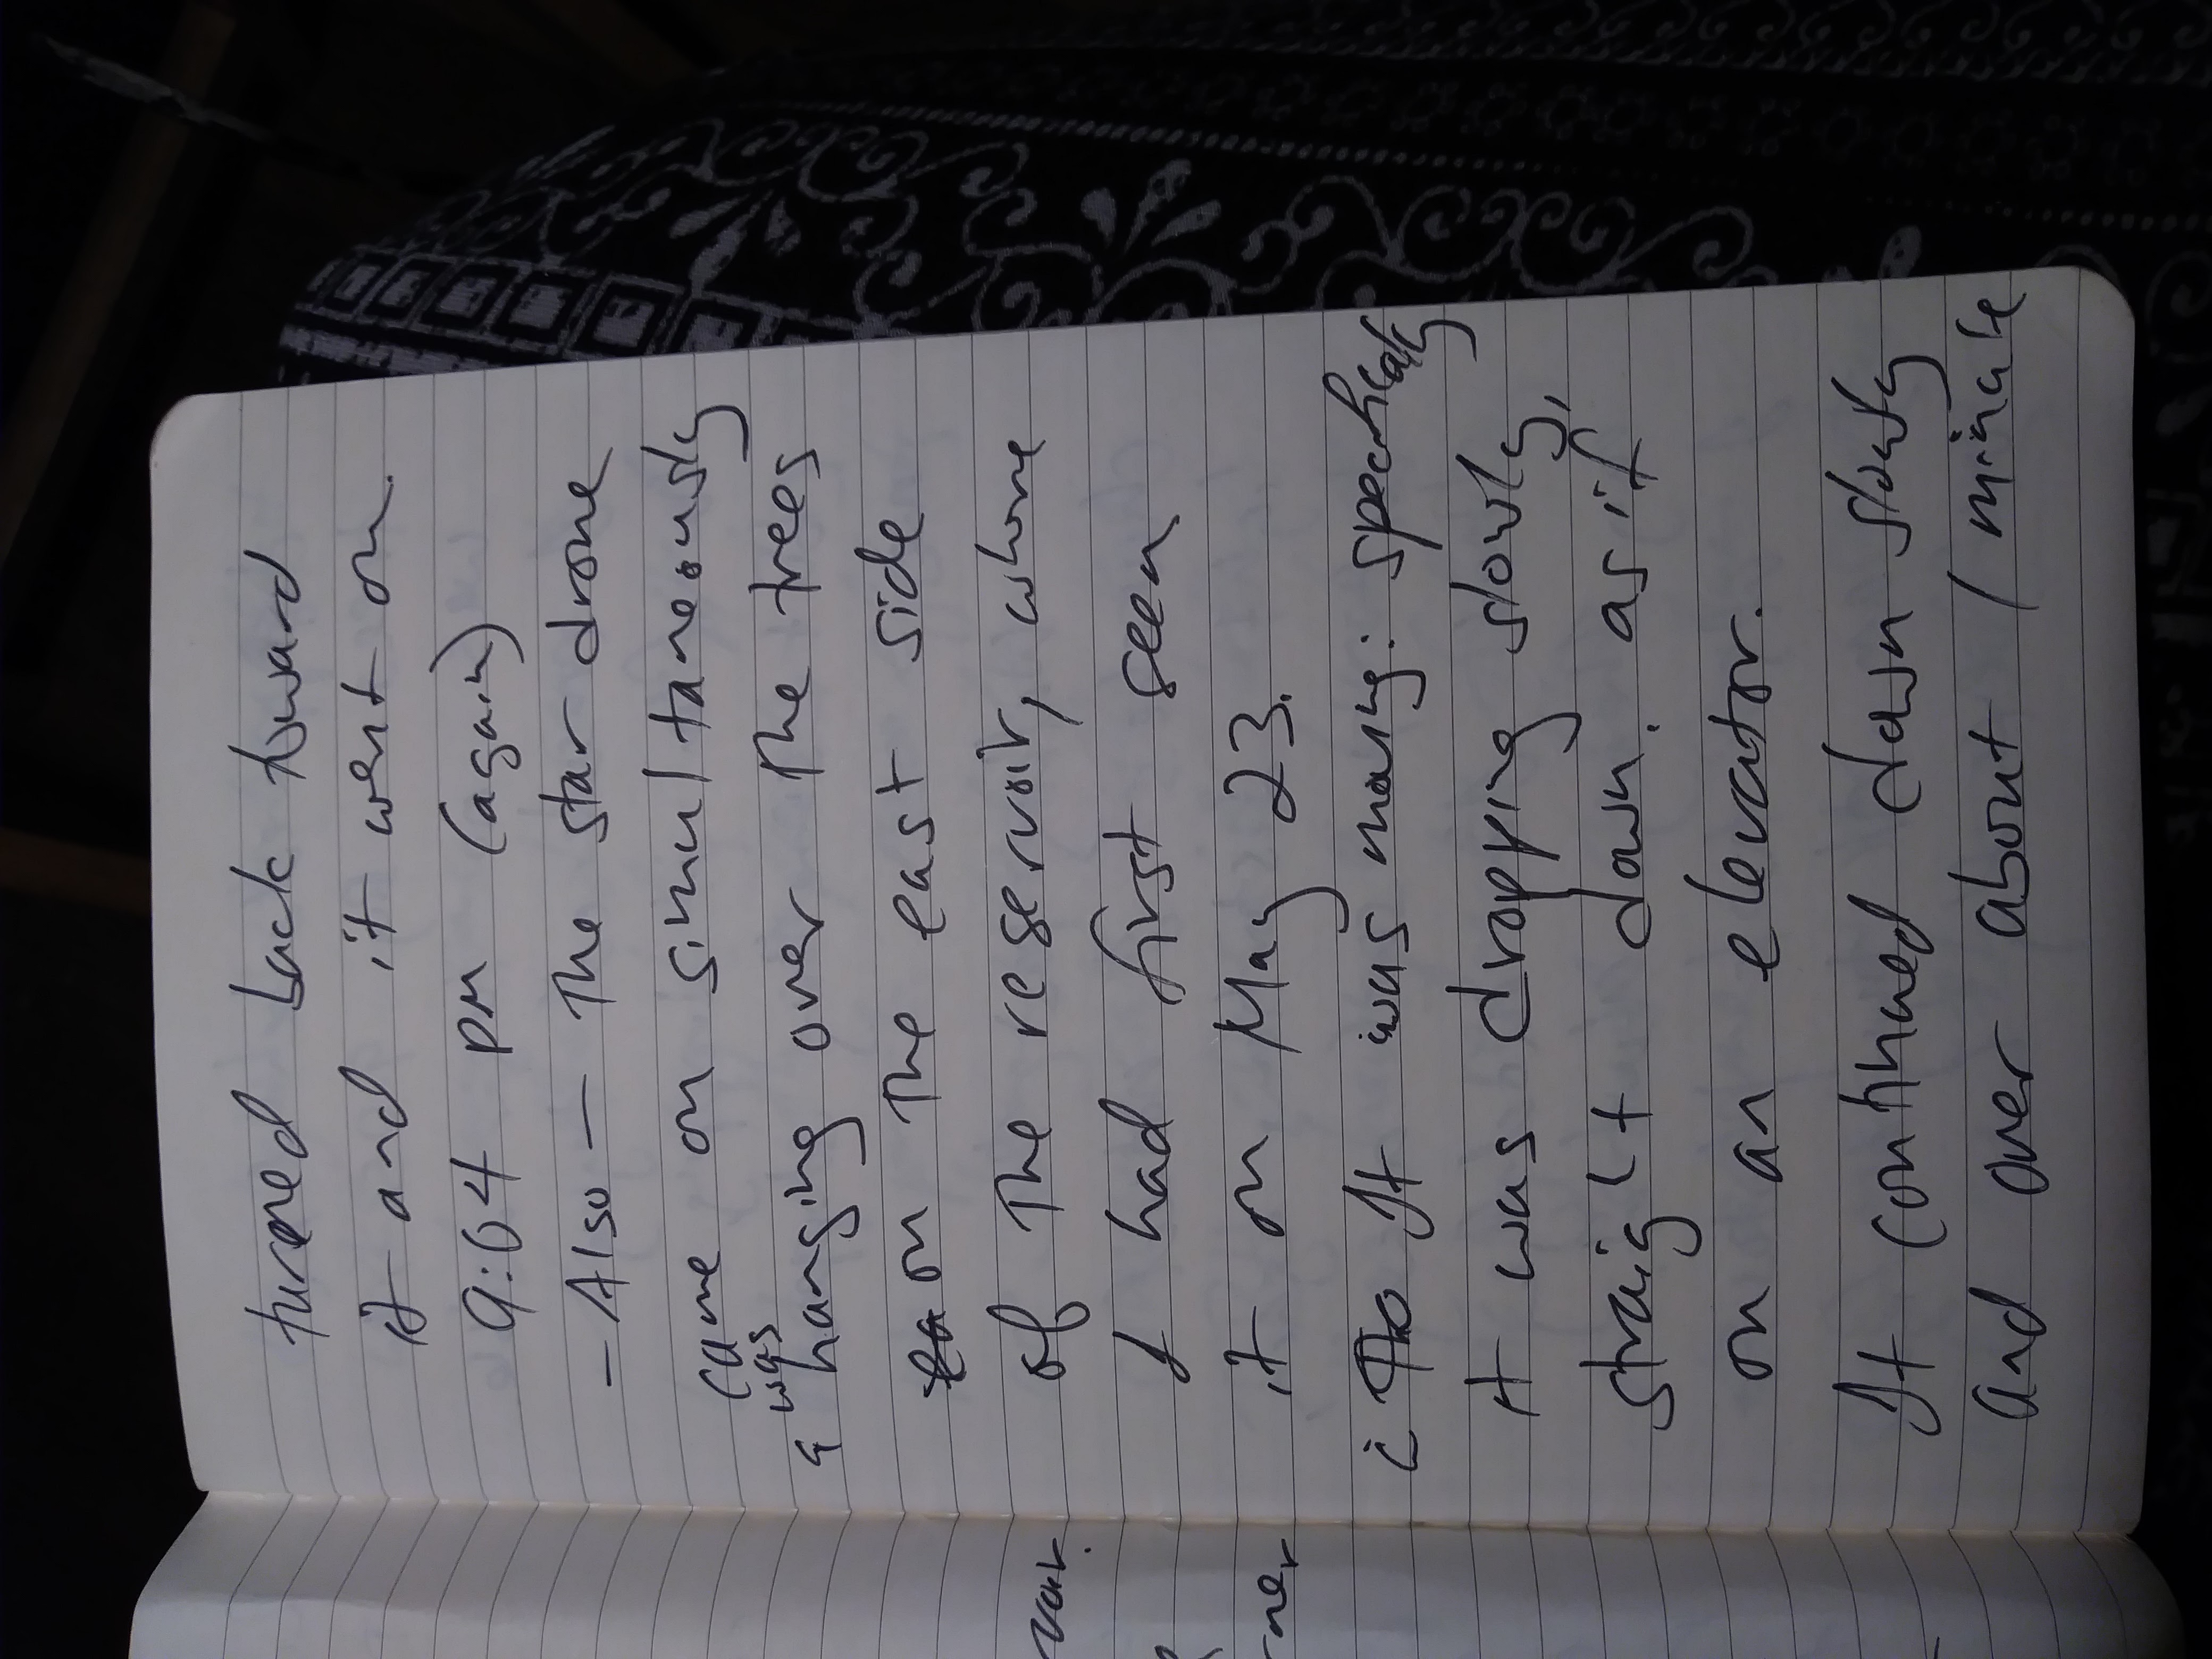 turned back toward
it and it went on.
9:04 PM (again)
- Also - The star drone
came on simultaneously
was
& hanging over the trees
on the east side
of the reservoir, where
I had first seen
it on May 23.
It was moving: specifically
it was dropping slowly,
straight down. as if
on an elevator.
It continued down slowly
and over about 1 minute
voir.
ner